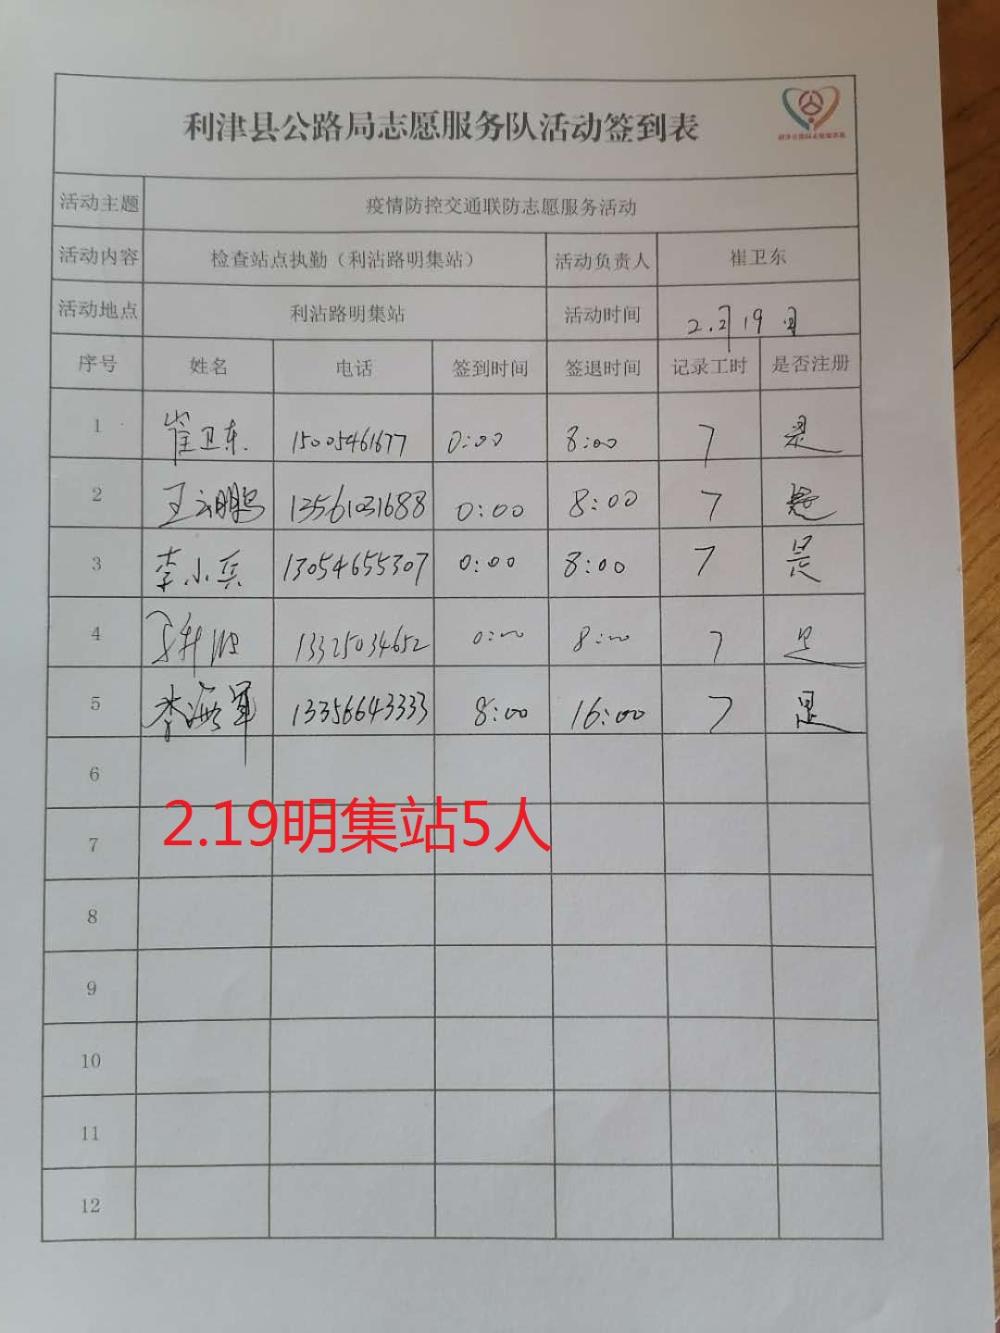 利津县公路局志愿服务队活动签到表
活动主题 疫情防控交通联防志愿服务活动
活动内容 检查站点执勤（利沾路明集站） 活动负责人 崔卫东
活动地点 利沾路明集站 活动时间 2.月19日
序号 姓名 电话 签到时间 签退时间 记录工时 是否注册
1 崔卫东 15005461677 0:00 8:00 7 是
2 王云鹏 13561031688 0:00 8:00 7 是
3 李小兵 13054655307 0:00 8:00 7 是
4 13325034652 0:00 8:00 7 是
5 李海军 13356643333 8:00 16:00 7 是
6
2.19明集站5人
7
8
9
10
11
12